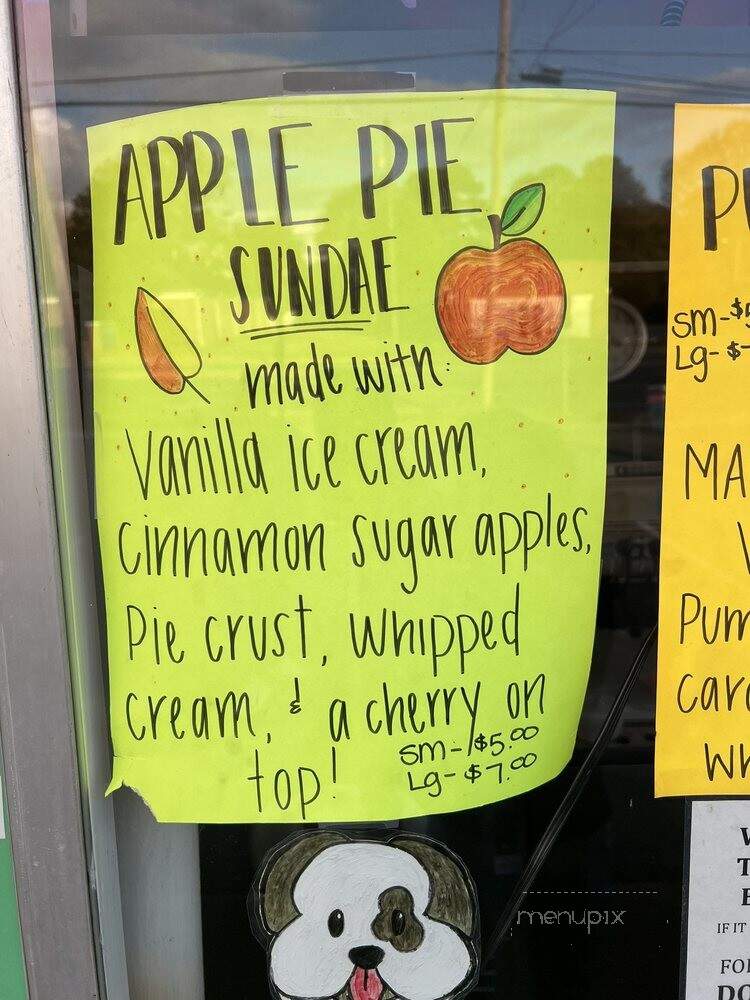 APPLE PIE
SUNDAE
made with:
Vanilla ice cream,
Cinnamon sugar apples,
Pie crust, whipped
cream, & a cherry on
top!
Sm-$5.00
Lg-$7.00
Sm-$5
Lg-$
MA
IF IT
menupix